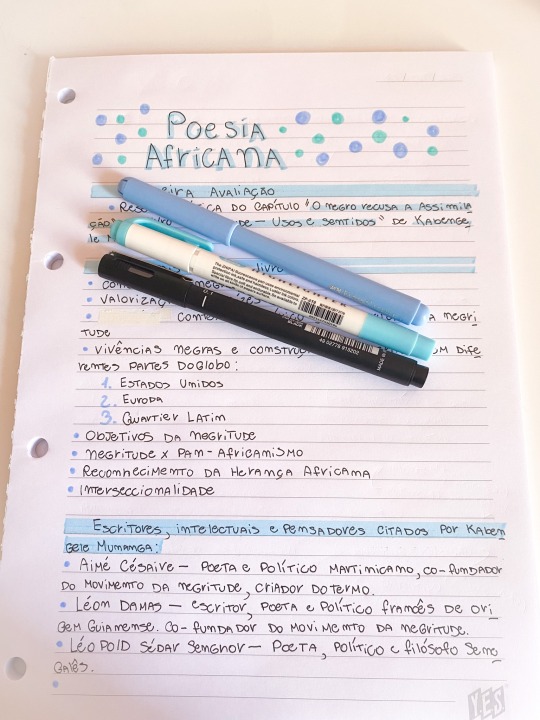 Poesia
Africana
Avaliação
do capítulo "O negro recusa a assimila
ção" Usos e sentidos" de Kabenge
le
livro
valorizaç
negri
tude
vivências negras e em dife
rentes partes do globo:
1. Estados Unidos
2. Europa
3. Quartier Latim
Objetivos da negritude
negritude x Pan-Africanismo
Reconhecimento da Herança Africana
Interseccionalidade
Escritores, intelectuais e pensadores citados por Kaben
gele Munanga:
Aimé Césaire — poeta e político martinicano, co-fundador
do movimento da negritude, criador do termo.
Léon Damas — escritor, poeta e político francês de ori
gem guianense. Co-fundador do movimento da negritude.
Léopold Sédar Senghor — poeta, político e filósofo sene
galês.
YES